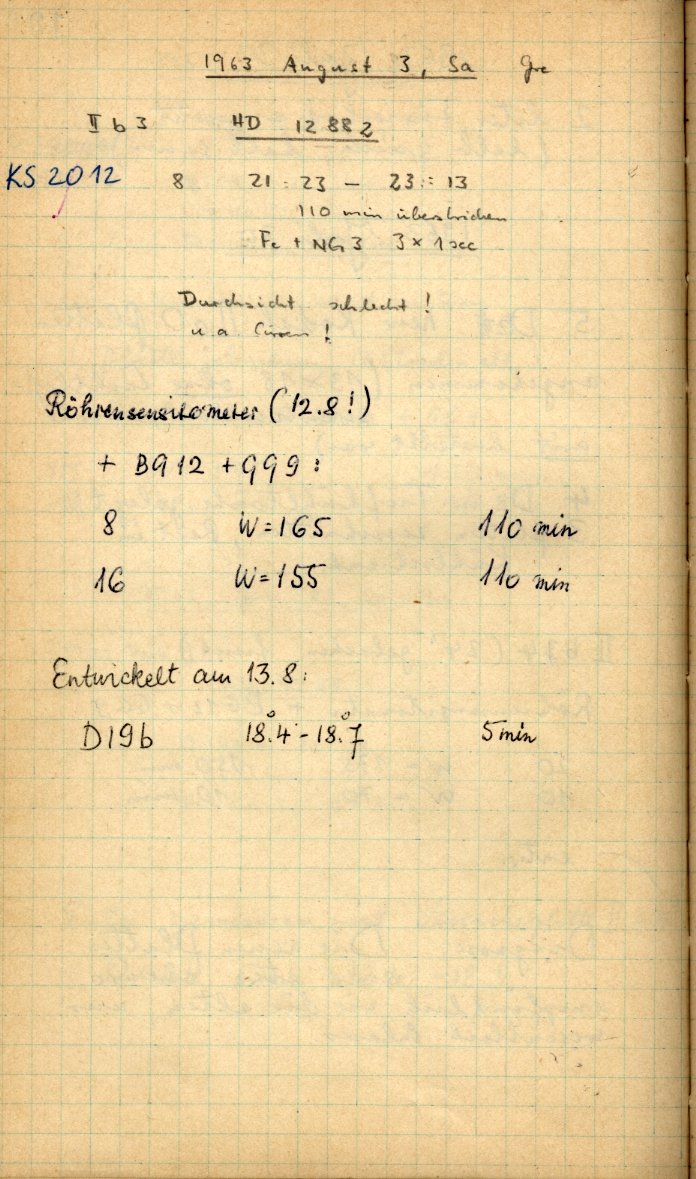 1963 August 3, Sa Gre
II b 3 HD 12882
KS 2012 8 21:23 – 23:13
110 min überstrichen
Fe + NG3 3×1 sec
Durchsicht schlecht!
u.a. Cirren!
Röhrensensitometer (12.8!)
+ BG12 + GG9:
8 W=165 110 min
16 W=155 110 min
Entwickelt am 13.8:
D19b 18.°4 - 18.°7 5 min